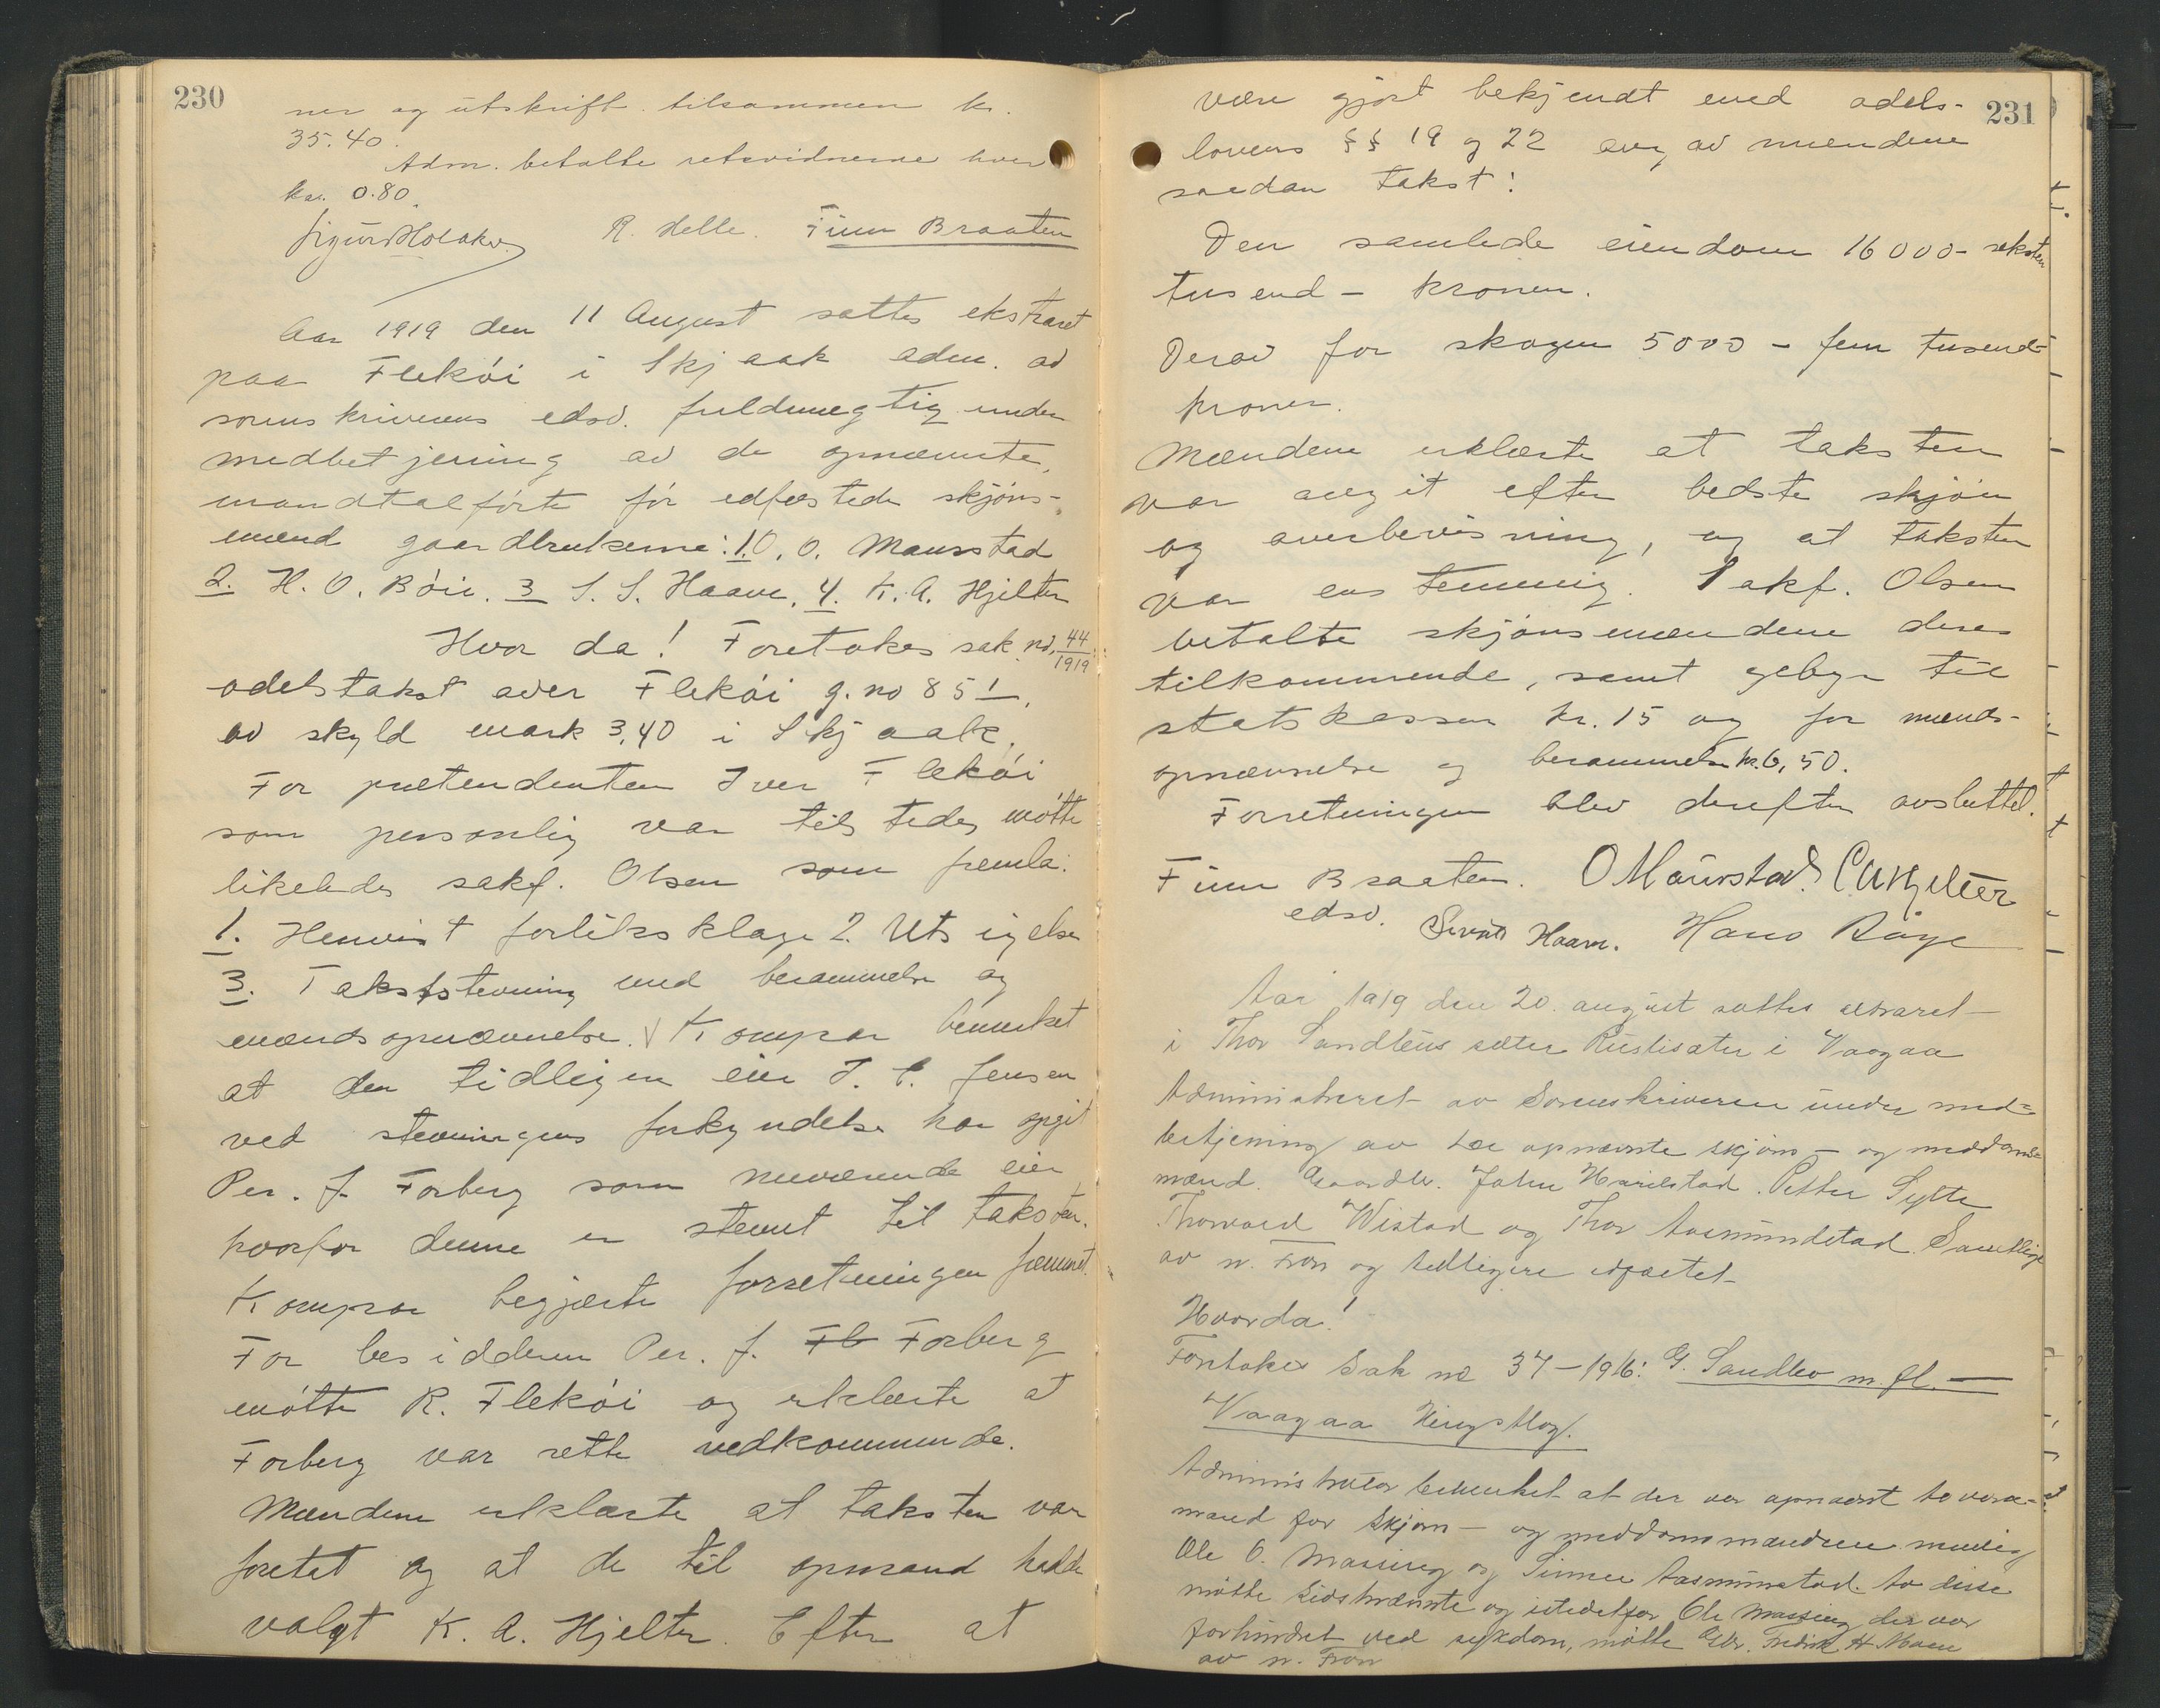 230
ner og utskrift tilsammen kr.
35.40.
Adm. betalte retsvidnerne hver
kr. 0.80.
Sigurd Holaker R. Helle. Finn Braaten
Aar 1919 den 11 August sattes ekstraret
paa Flekøi i Skjaak adm. av
sorenskriverens edsv. fuldmegtig under
medbetjening av de opnævnte,
mandtalførte før edfæstede skjøns-
mænd gaardbrukerne: 1. O. O. Maurstad
2. H. O. Böie. 3 S. S. Haave. 4. K. A. Hjelter
Hvor da! Foretokes sak no. 44/1919:
odelstakst over Flekøi g. no 85 1
av skyld mark 3,40 i Skjaak.
For prætendenten Iver Flekøi
som personlig var tilstede, møtte
likeledes sakf. Olsen som fremla:
1. Henvist forliksklage 2. Utsigelse
3. Takststevning med berammelse og
mændsopnævnelse. Kompar. bemerket
at den tidligere eier J. C. Jensen
ved stevningens forkyndelse har opgit
Per. J. Forberg som nuværende eier
hvorfor denne er stevnt til taksten.
Kompar begjærte forretningen fremmet.
For besidderen Per. J. Fl Forberg
møtte R. Flekøi og erklærte at
Forberg var rette vedkommende.
Mændene erklærte at taksten var
foretat og at de til opmand hadde
valgt K. A. Hjelter. Efter at
231
være gjort bekjendt med odels-
lovens §§ 19 og 22 avg. av mændene
saadan takst:
Den samlede eiendom 16000- seksten
tusend - kroner.
Derav for skogen 5000 - fem tusend-
kroner.
Mændene erklærte at taksten
var avgit efter bedste skjøn
og overbevisning, og at taksten
var enstemmig. Sakf. Olsen
betalte skjønsmændene deres
tilkommende, samt gebyr til
statskassen kr. 15 og for mænds-
opnævnelse og berammelse kr. 6,50.
Forretningen blev derefter avsluttet.
Finn Braaten. O Maurstad. K A Hjelter
edsv. Sivert Haave. Hans Böye
Aar 1919 den 20. august sattes
i Thor Sandbus sæter Rustisæter i Vaagaa
Administreret av Sorenskriveren under med-
betjening av de opnævnte skjøns- og meddoms-
mænd. Gaardbr. John Harildstad. Petter Sylte
Thorvald Wistad og Thor Aasmundstad. Samtlige
av n. Fron og tidligere edfæstet
Hvorda!
Foretokes Sak no 37-1916: G. Sandbo m. fl. -
Vaagaa
Administrator bemerket at der var opnævnt to vara-
mænd for skjøns- og meddomsmændene nemlig
Ole O. Massing og Simen Aasmundstad. Av disse
møtte sidstnævnte og istedetfor Ole Massing der var
forhindret ved sykdom, møtte Gbr. Fredrik H. Moen
av n. Fron